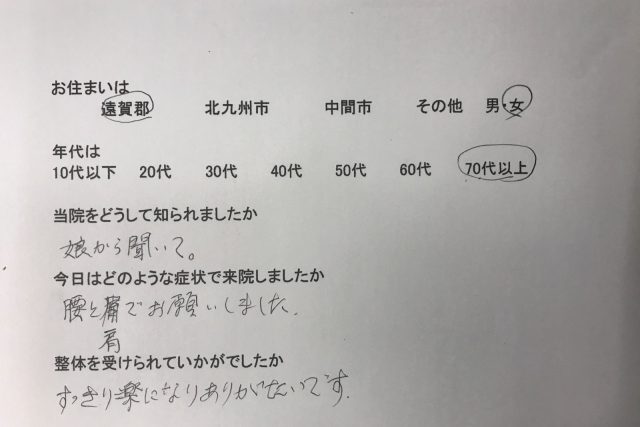 お住まいは
遠賀郡 北九州市 中間市 その他 男・女
年代は
10代以下 20代 30代 40代 50代 60代 70代以上
当院をどうして知られましたか
娘から聞いて。
今日はどのような症状で来院しましたか
腰と でお願いしました.
肩
整体を受けられていかがでしたか
すっきり楽になりありがたいです.